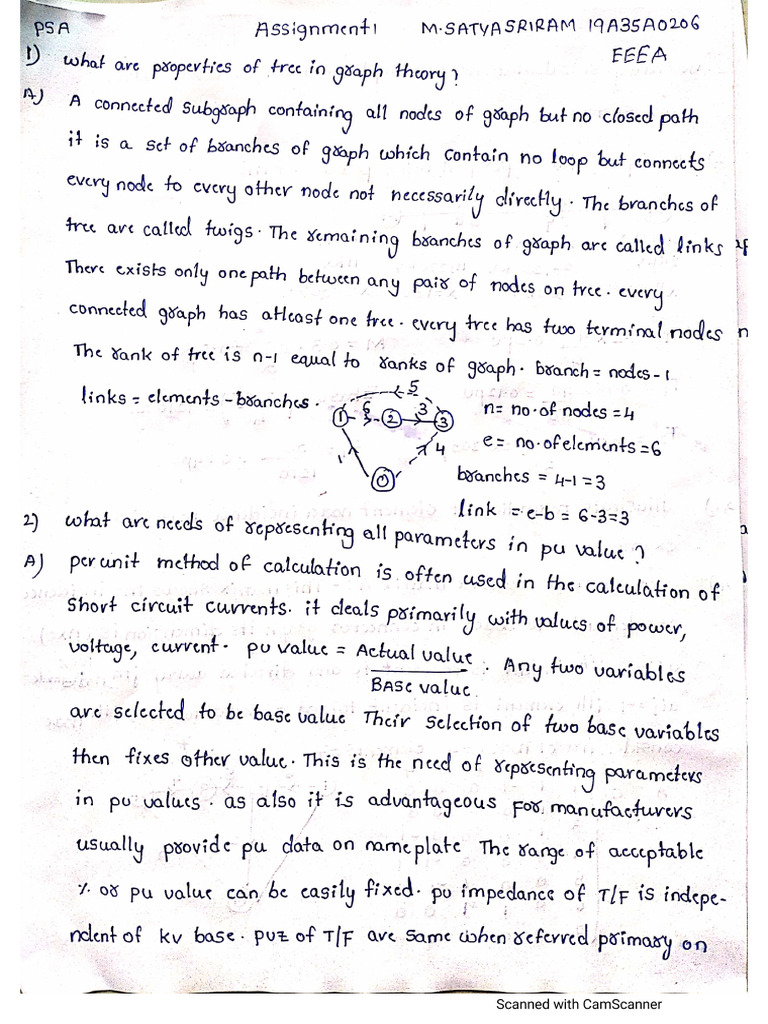 PSA Assignment1 M.SATYASRIRAM 19A35A0206
EEEA
1) what are properties of tree in graph theory?
A) A connected subgraph containing all nodes of graph but no closed path
it is a set of branches of graph which contain no loop but connects
every node to every other node not necessarily directly. The branches of
tree are called twigs. The remaining branches of graph are called links
There exists only one path between any pair of nodes on tree. every
connected graph has atleast one tree. every tree has two terminal nodes
The rank of tree is n-1 equal to ranks of graph. branch = nodes-1
links = elements - branches.
5
1 6 2 3 3
1 4
0
n= no.of nodes = 4
e= no.of elements = 6
branches = 4-1 = 3
link = e-b = 6-3=3
2) what are needs of representing all parameters in pu value?
A) per unit method of calculation is often used in the calculation of
short circuit currents. it deals primarily with values of power,
voltage, current. pu value = Actual value / BASE value. Any two variables
are selected to be base value Their selection of two base variables
then fixes other value. This is the need of representing parameters
in pu values. as also it is advantageous For manufacturers
usually provide pu data on nameplate The range of acceptable
% or pu value can be easily fixed. pu impedance of T/F is indepe-
ndent of kv base. puz of T/F are same when referred primary on
Scanned with CamScanner